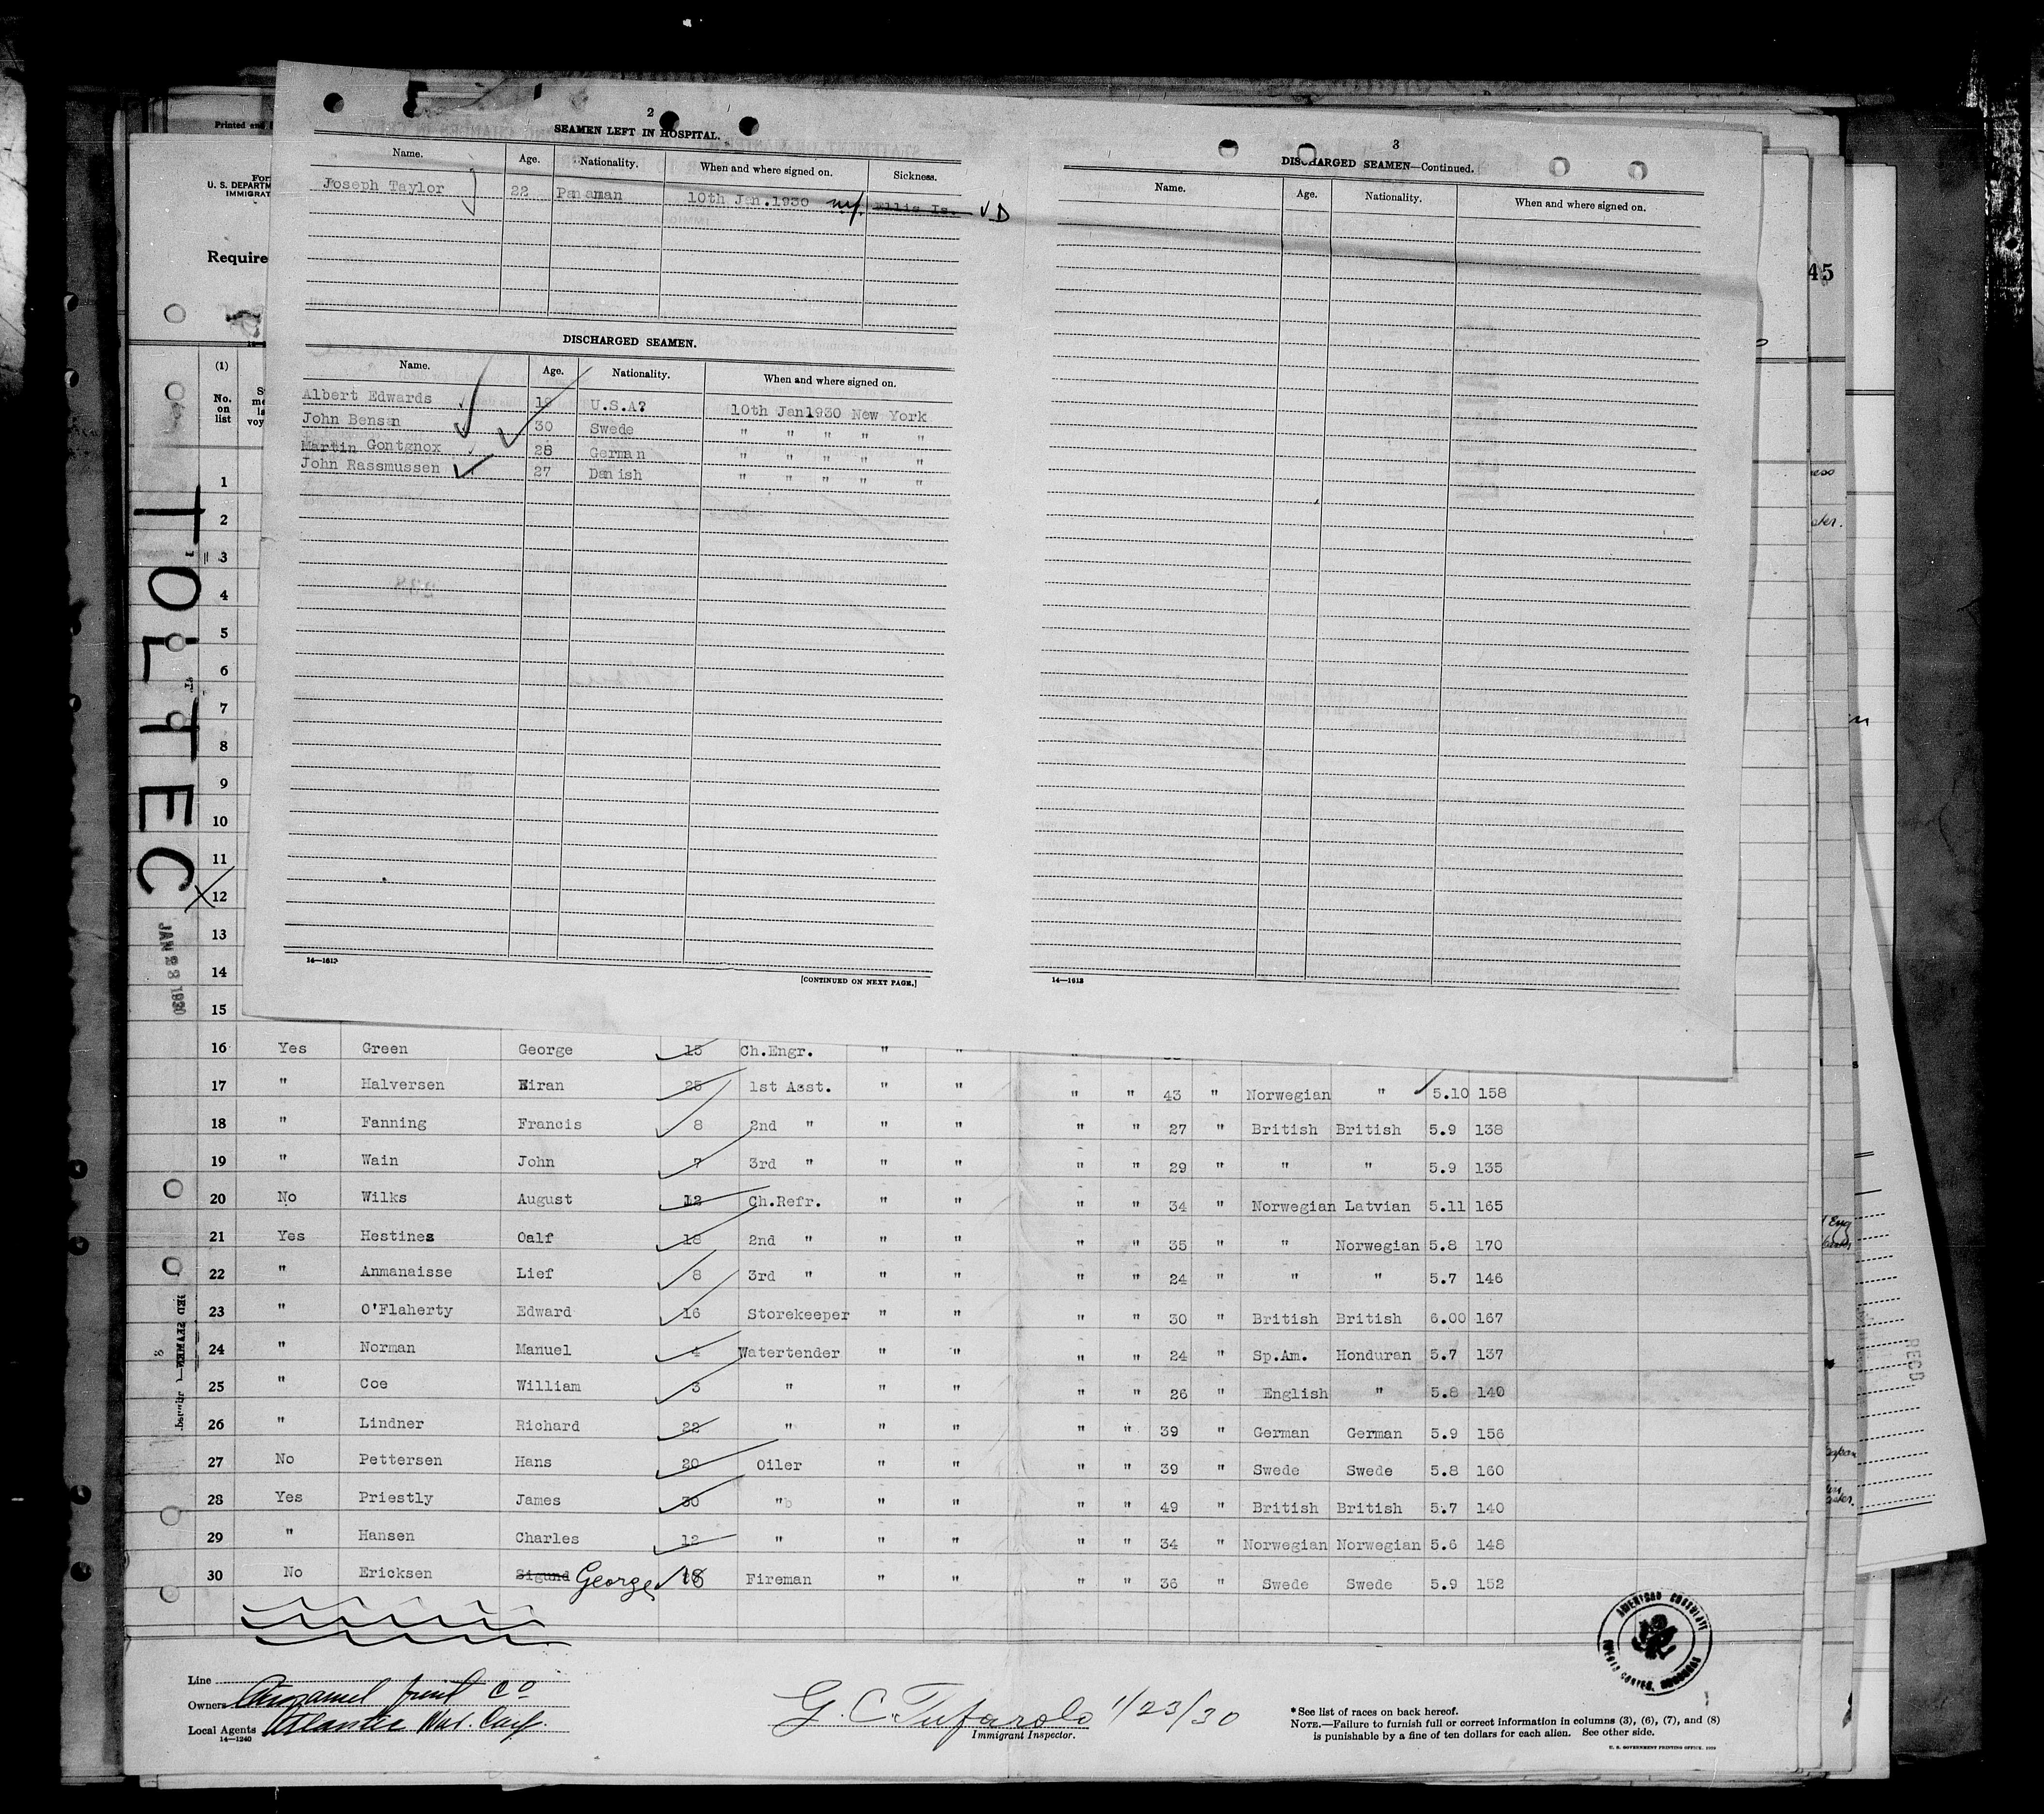 2
SEAMEN LEFT IN HOSPITAL.
Name. Age. Nationality. When and where signed on. Sickness.
Joseph Taylor 22 Panaman 10th Jan.1930 Ellis Is. VD
DISCHARGED SEAMEN.
Name. Age. Nationality. When and where signed on.
Albert Edwards U.S.A? 10th Jan1930 New York
John Bensan 30 Swede " " " " "
Martin Gontgnox 28 German " " " " "
John Rassmussen 27 Danish " " " " "
14—1613
[CONTINUED ON NEXT PAGE.]
3
DISCHARGED SEAMEN—Continued.
Name. Age. Nationality. When and where signed on.
14—1613
Printed and
U. S. DEPARTM
IMMIGRAT
Require
45
(1)
No. on list
TOLTEC
JAN 23 1930
1
2
3
4
5
6
7
8
9
10
11
12
13
14
15
16 Yes Green George 15 Ch.Engr. " " "
17 " Halversen Eiran 25 1st Asst. " " " " 43 " Norwegian " 5.10 158
18 " Fanning Francis 8 2nd " " " " " 27 " British British 5.9 138
19 " Wain John 7 3rd " " " " " 29 " " " 5.9 135
20 No Wilks August 12 Ch.Refr. " " " " 34 " Norwegian Latvian 5.11 165
21 Yes Hestines Oalf 18 2nd " " " " " 35 " " Norwegian 5.8 170
22 " Anmanaisse Lief 8 3rd " " " " " 24 " " " 5.7 146
23 " O'Flaherty Edward 16 Storekeeper " " " " 30 " British British 6.00 167
24 " Norman Manuel 4 Watertender " " " " 24 " Sp.Am. Honduran 5.7 137
25 " Coe William 3 " " " " " 26 " English " 5.8 140
26 " Lindner Richard 22 " " " " " 39 " German German 5.9 156
27 No Pettersen Hans 20 Oiler " " " " 39 " Swede Swede 5.8 160
28 Yes Priestly James 30 " " " " " 49 " British British 5.7 140
29 " Hansen Charles 12 " " " " " 34 " Norwegian Norwegian 5.6 148
30 No Ericksen Sigund George 18 Fireman " " " " 36 " Swede Swede 5.9 152
AMERICAN CONSULATE
PUERTO CORTES, HONDURAS
Line
Owners Cuyamel Fruit Co
Local Agents Atlantic Nav. Corp.
14—1240
G. C. Tufarolo 1/23/30
Immigrant Inspector.
*See list of races on back hereof.
NOTE.—Failure to furnish full or correct information in columns (3), (6), (7), and (8)
is punishable by a fine of ten dollars for each alien. See other side.
U. S. GOVERNMENT PRINTING OFFICE
RECD